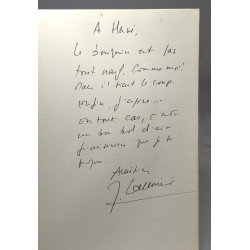 A Marie,
Le bouquin est pas
tout neuf. Comme moi!
Mais il tient le coup.
Enfin, j'espère...
En tout cas, c'est
un bon bol d'air
que je te
Amitiés